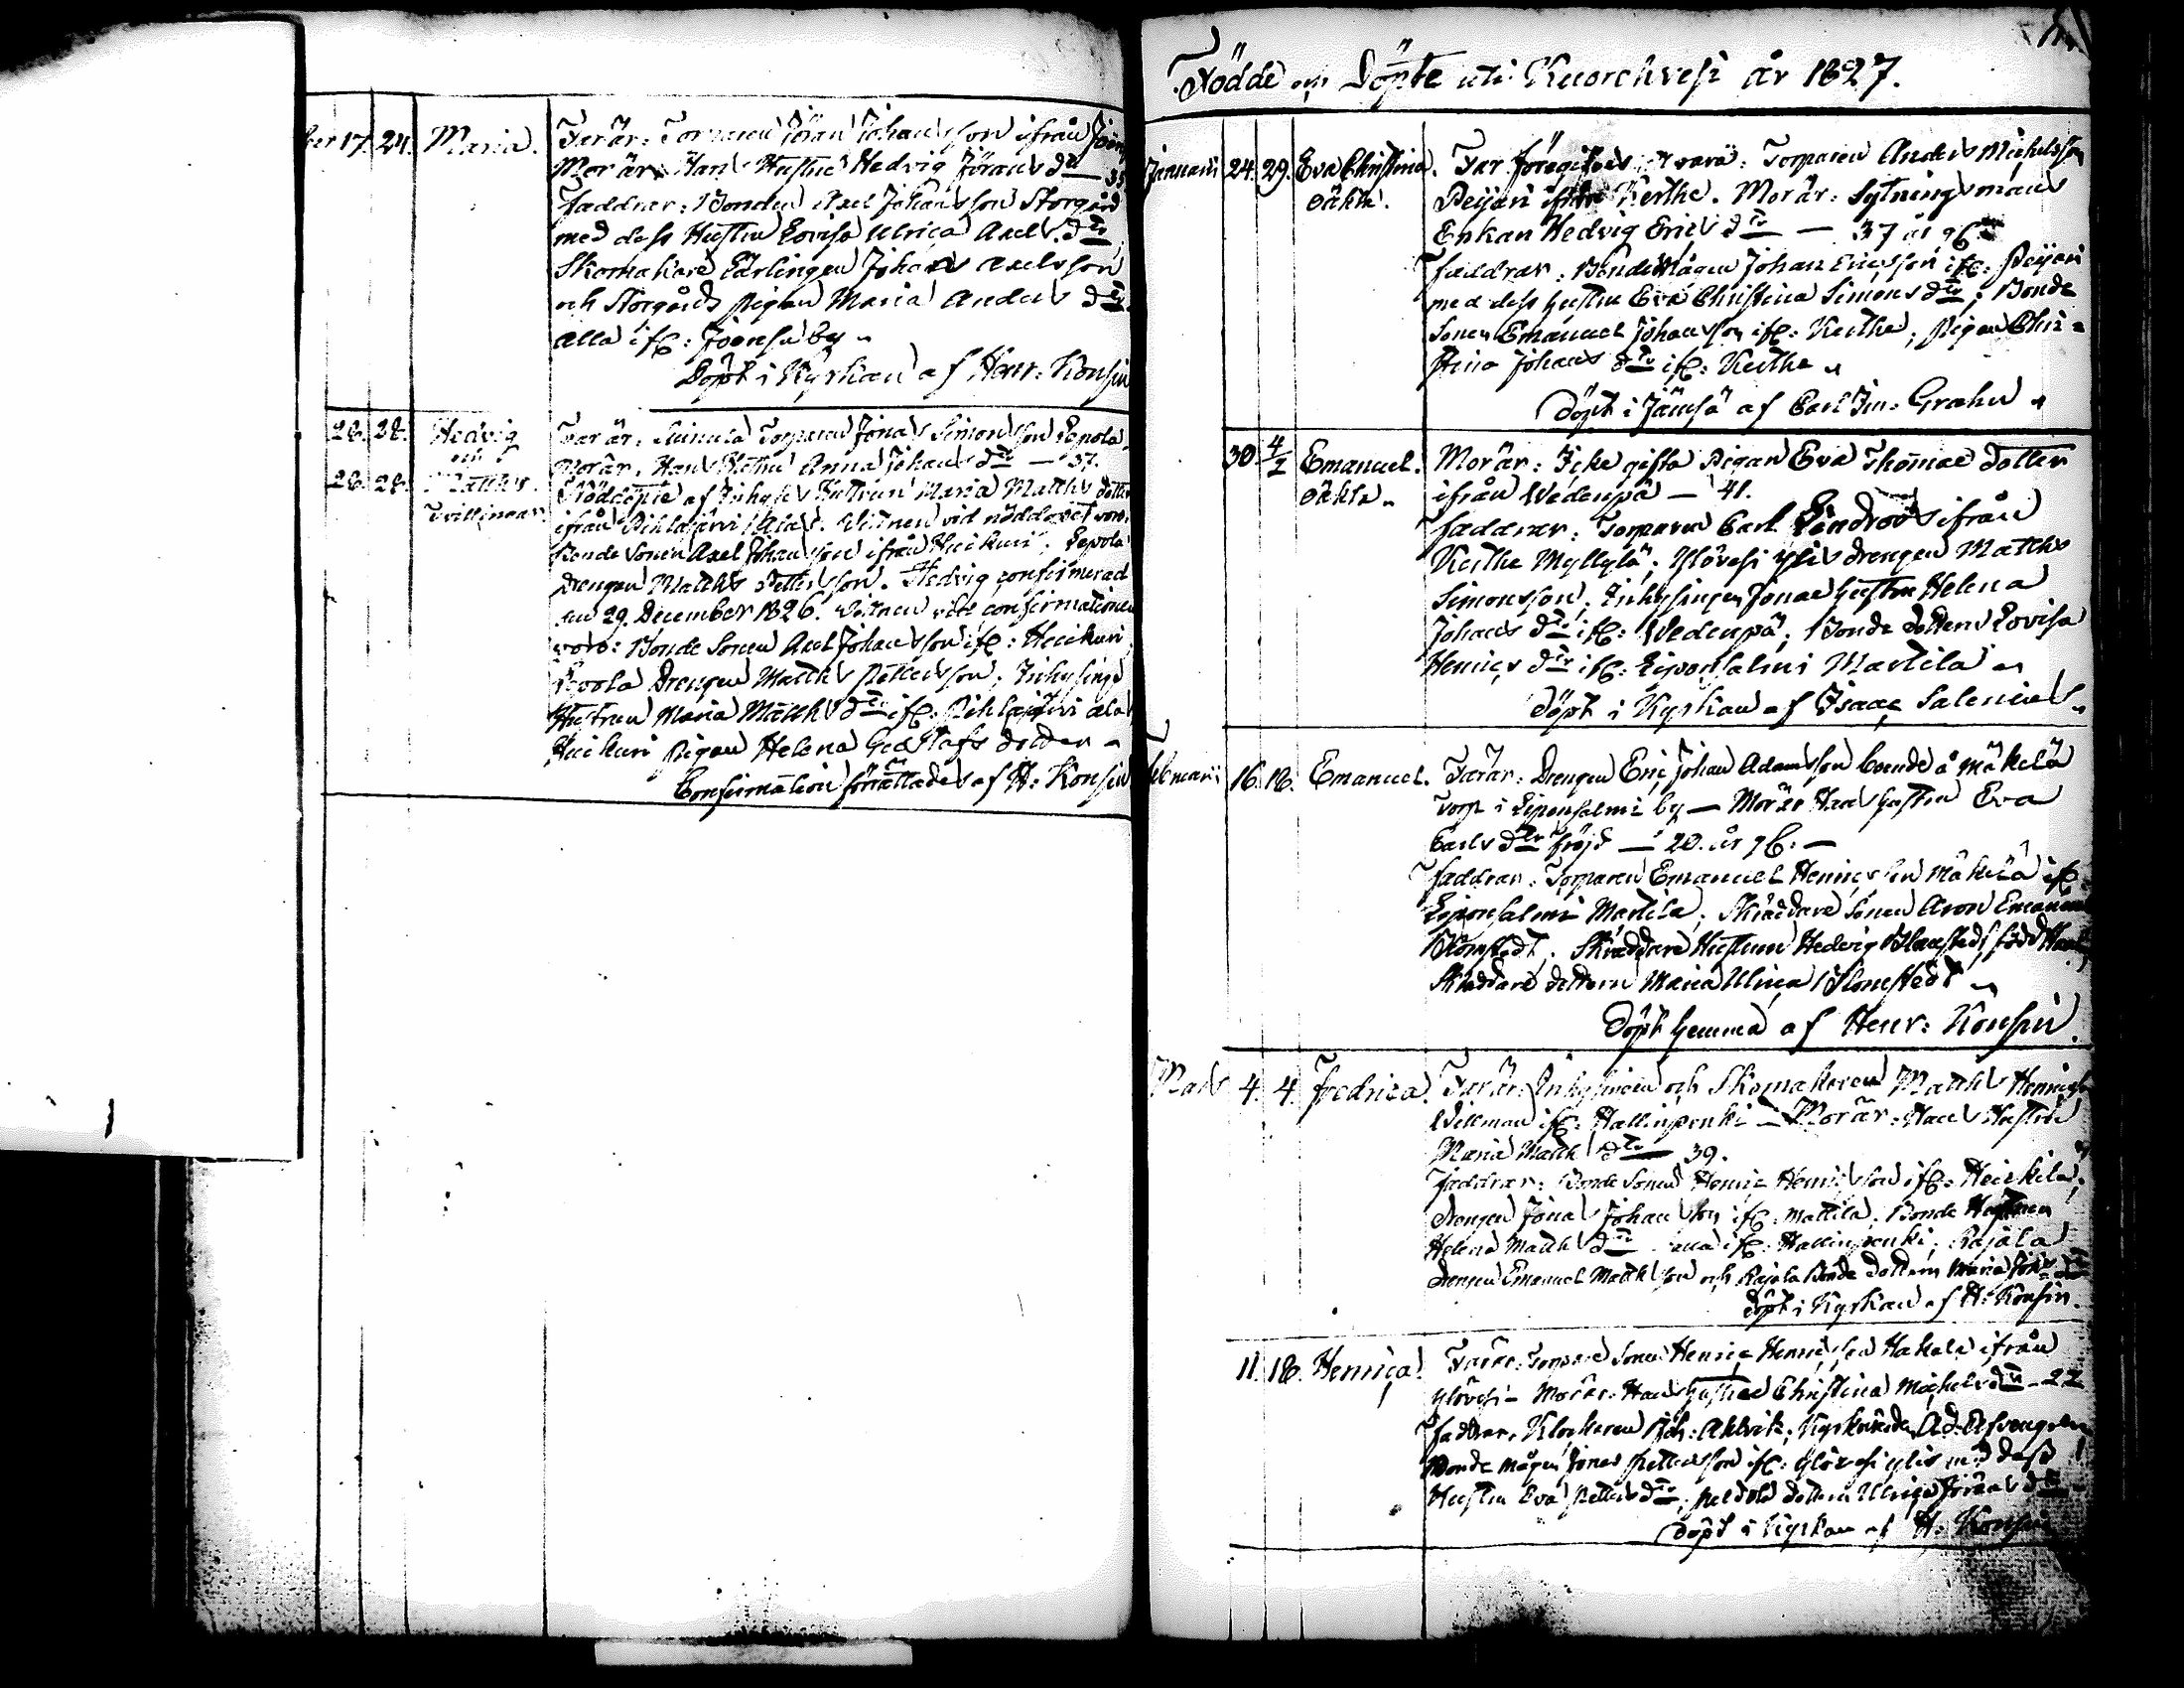 17. 24. Maria. Far är: Torparen Jöran Johansson ifrån
Mor är: Hans Hustru Hedvig Jörans dr — 33
Faddrar: Bonden Axel Johansson Storgård
med dess Hustru Lovisa Ulrica Axels dr,
Skomakare Lärlingen Johan Axelsson
och Storgårds Pigan Maria Anders dr
alla ifr: Joensu by
Döpt i Kyrkan af Henr: Konsin
28. 28. Hedvig Far är: Torparen Jonas Simonsson Lepola
och Mor är: Hans Hustru Anna Johans dr — 37.
28. 28. Matths. Nöddöpte af Inhyses Hustrun Maria Matths dotter
Tvillingar ifrån Pihlajärvi Vittnen vid nöddopet voro:
Bonde Sonen Axel Johansson ifrån Heikuri, Lepola
Drengen Matths Pettersson. Hedvig confirmerad
den 29. December 1826. Vittnen vid confirmationen
voro: Bonde Sonen Axel Johansson ifr: Heikuri
Lepola Drengen Matths Pettersson, Inhysings
Hustrun Maria Matths dr ifr: Pihlajärvi
Heikuri Pigan Helena Gustafs dotter
Confirmation förrättades af H: Konsin
Födde och Döpte uti Kuorehvesi år 1827.
Januarii 24. 29. Eva Christina. Far föregifves vara: Torparen Anders Michelsson
oäkta. Peijari ifrån Keithe. Mor är: Sytningsmans
Enkan Hedvig Erics dr — 37 år
Faddrar: Bonde Mågen Johan Ericsson ifr: Peijari
med dess Hustru Eva Christina Simons dr; Bonde
Sonen Emanuel Johansson ifr: Keithe; Pigan Chri-
stina Johans dr ifr: Keithe
Döpt i Jämsä af Carl Grahn
30. 4/2 Emanuel. Mor är: Icke gifta Pigan Eva Thomae dotter
oäkta. ifrån Wedenpä — 41.
Faddrar: Torparen Carl ifrån
Keithe Myllylä; Ylövesi Ylis Drengen Matths
Simonsson; Inhysingen Jonae Hustru Helena
Johans dr ifr: Wedenpä; Bonde dottern Lovisa
Henrics dr ifr: Eiponsalmi Martila
Döpt i Kyrkan af Isaac Salenius
Februarii 16. 18. Emanuel. Far är: Drengen Eric Johan Adamsson boende å Mäkelä
Torp i Eiponsalmi by — Mor är Hans Hustru Eva
Carls dr Fröjd — 20. år
Faddrar: Torparen Emanuel Henricsson Mäkelä ifr:
Eiponsalmi Martila; Skräddare Sonen Aron
Blomstedt; Skräddare Hustrun Hedvig Blomstedt född
Skräddare dottern Maria Ulrica Blomstedt
Döpt hemma af Henr: Konsin.
Mars 4. 4. Fredrica. Far är: Inhysingen och Skomakaren Matths
Willman ifr: Hallinpenki — Mor är: Hans Hustru
Maria Matths dr — 39.
Faddrar: Bonde Sonen Henric Henricsson ifr: Heikila;
Drengen Jonas Johansson ifr: Mattila; Bonde Hustrun
Helena Matths dr alla ifr: Hallinpenki; Rajala
Drengen Emanuel Mattsson och Rajala Bonde dottern Maria
Döpt i Kyrkan af H: Konsin.
11. 18. Henrica. Far är: Torpare Sonen Henric Henricsson Hakala ifrån
Ylövesi — Mor är: Hans Hustru Christina Michels dr — 22
Faddrar: Klockaren Joh: Ahlvik;
Bonde Mågen Jonas Pettersson ifr: Ylövesi Ylis med dess
Hustru Eva Petters dr; dottern Ulrica Jörans dr
Döpt i Kyrkan af H: Konsin